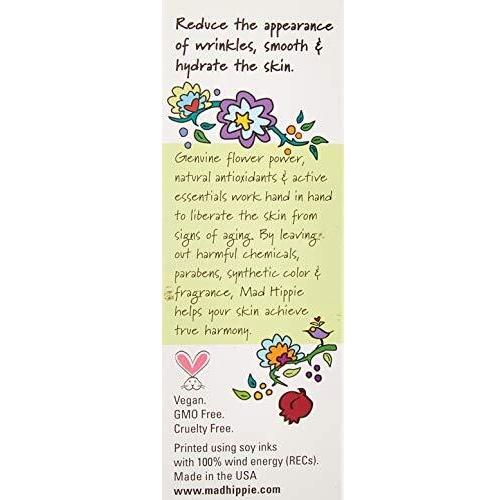 Reduce the appearance
of wrinkles, smooth &
hydrate the skin.
Genuine flower power,
natural antioxidants & active
essentials work hand in hand
to liberate the skin from
signs of aging. By leaving
out harmful chemicals,
parabens, synthetic color &
fragrance, Mad Hippie
helps your skin achieve
true harmony.
Vegan.
GMO Free.
Cruelty Free.
Printed using soy inks
with 100% wind energy (RECs).
Made in the USA
www.madhippie.com